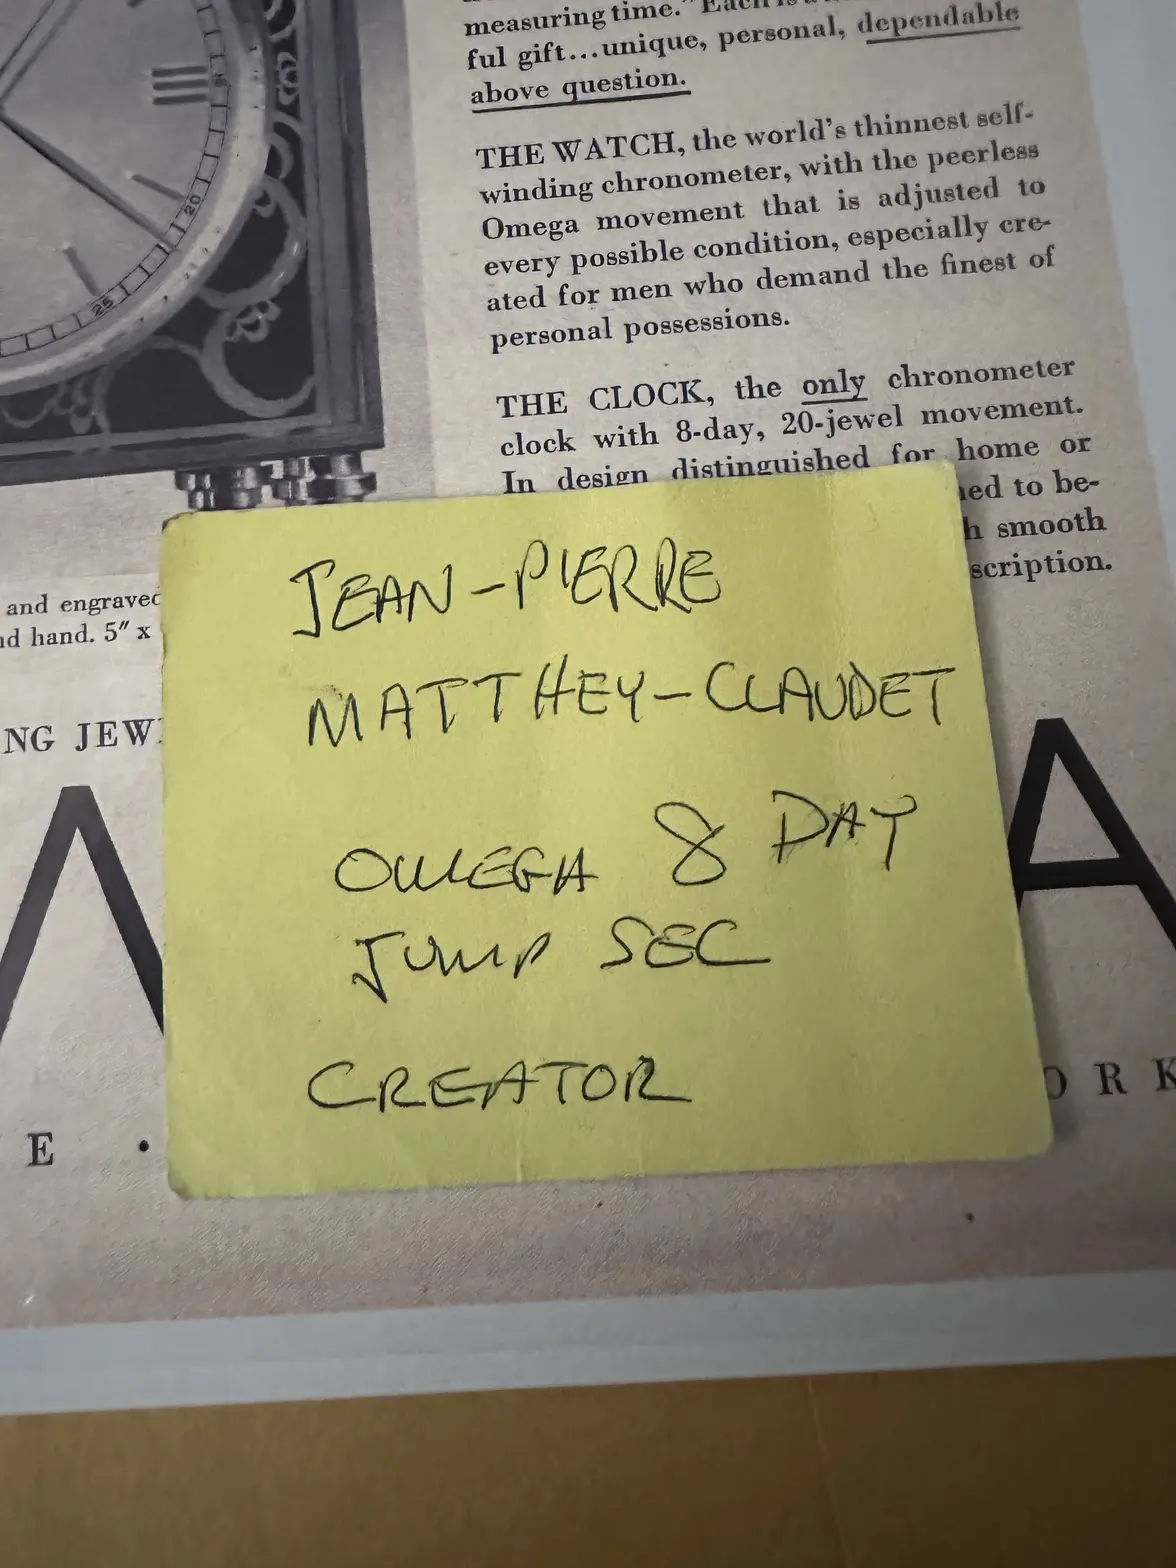 measuring time." Each is a
ful gift...unique, personal, dependable
above question.
THE WATCH, the world's thinnest self-
winding chronometer, with the peerless
Omega movement that is adjusted to
every possible condition, especially cre-
ated for men who demand the finest of
personal possessions.
THE CLOCK, the only chronometer
clock with 8-day, 20-jewel movement.
In design distinguished for home or
to be-
smooth
scription.
20
25
and engraved
hand. 5" x
NG JEW
A
E •
ORK
JEAN-PIERRE
MATTHEY-CLAUDET
OMEGA 8 DAY
JUMP SEC
CREATOR